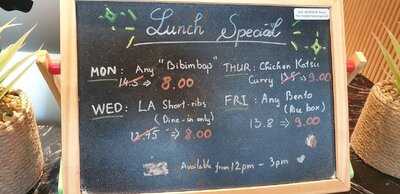 Lunch Special
MON: Any "Bibimbap"
14.5 ⇒ 8.00
THUR: Chicken Katsu
Curry 9.00
WED: LA Short-ribs
(Dine-in only)
12.95 ⇒ 8.00
FRI: Any Bento
(Box)
13.8 ⇒ 9.00
Available from 12pm - 3pm